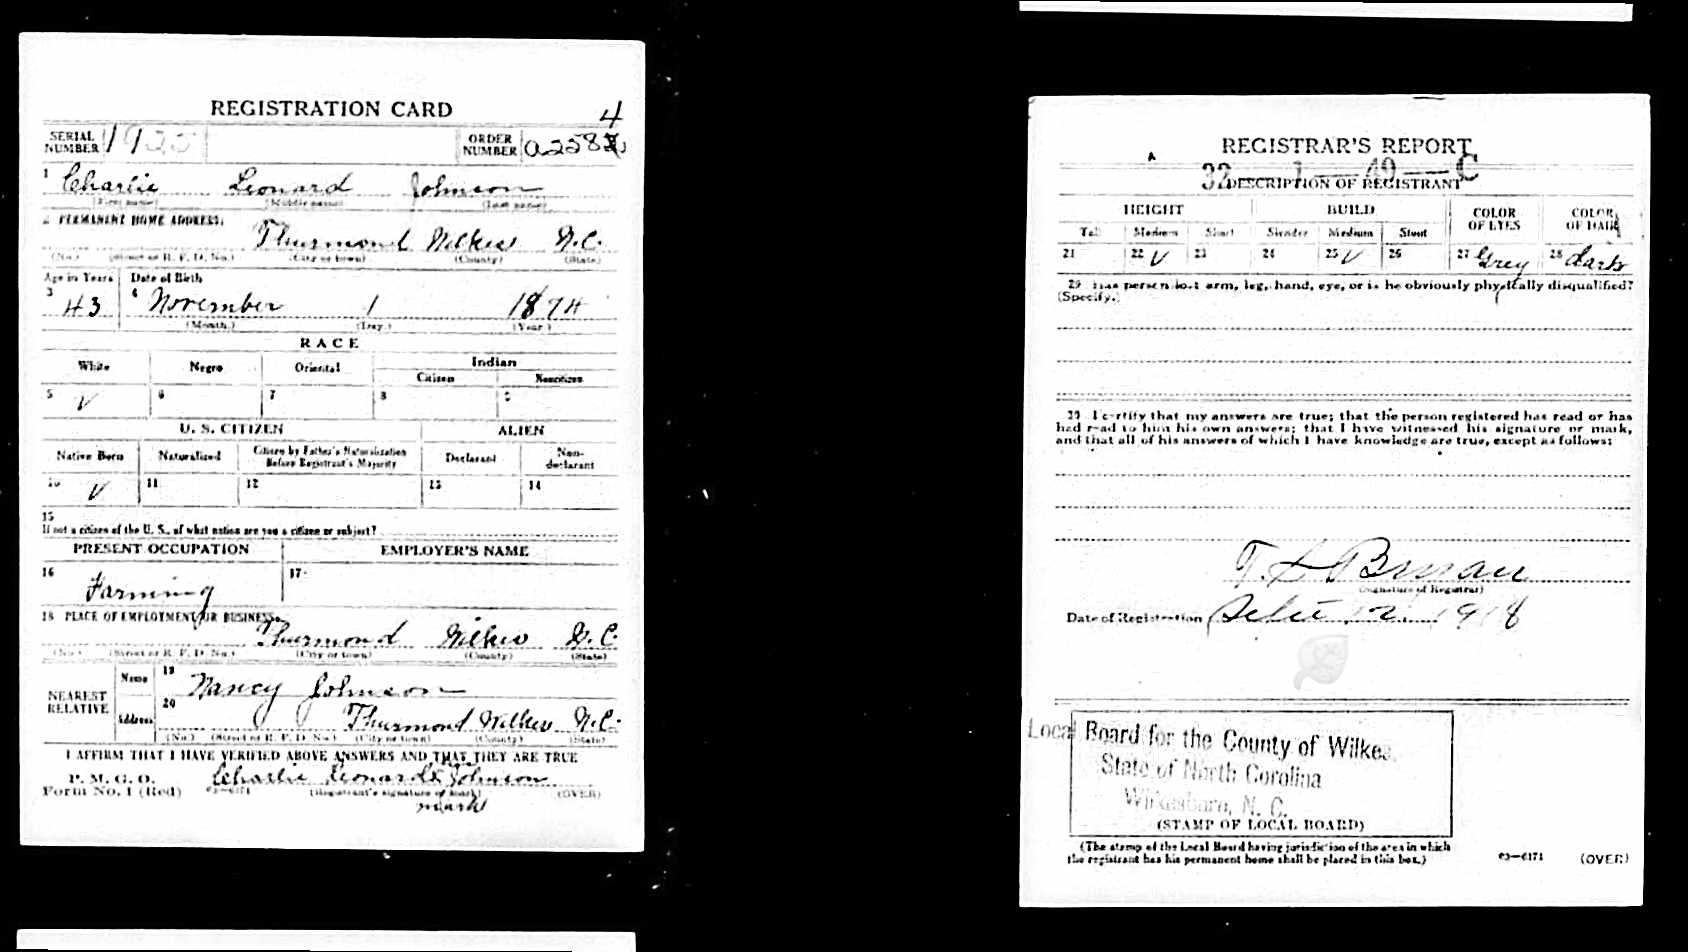 REGISTRATION CARD 4
SERIAL NUMBER 1925 ORDER NUMBER
1 Charlie Leonard Johnson
(First name) (Middle name) (Last name)
2 PERMANENT HOME ADDRESS:
Thurmond Wilkes N.C.
(No.) (Street or R. F. D. No.) (City or town) (County) (State)
Age in Years Date of Birth
3 43 4 November 1 1874
(Month.) (Day.) (Year.)
RACE
White Negro Oriental Indian
Citizen Noncitizen
5 V 6 7 8 9
U. S. CITIZEN ALIEN
Native Born Naturalized Citizen by Father's Naturalization Before Registrant's Majority Declarant Non-declarant
10 V 11 12 13 14
15
If not a citizen of the U. S., of what nation are you a citizen or subject?
PRESENT OCCUPATION EMPLOYER'S NAME
16 Farming 17
18 PLACE OF EMPLOYMENT OR BUSINESS:
Thurmond Wilkes N.C.
(No.) (Street or R. F. D. No.) (City or town) (County) (State)
NEAREST RELATIVE Name 19 Nancy Johnson
Address 20 Thurmond Wilkes N.C.
(No.) (Street or R. F. D. No.) (City or town) (County) (State)
I AFFIRM THAT I HAVE VERIFIED ABOVE ANSWERS AND THAT THEY ARE TRUE
P. M. G. O.
Form No. 1 (Red) 03—6171 Charlie Leonard X Johnson
(Registrant's signature or mark) (OVER)
mark
REGISTRAR'S REPORT
32—1—49—C
DESCRIPTION OF REGISTRANT
HEIGHT BUILD COLOR OF EYES COLOR OF HAIR
Tall Medium Short Slender Medium Stout
21 22 V 23 24 25 V 26 27 Grey 28 dark
29 Has person lost arm, leg, hand, eye, or is he obviously physically disqualified?
(Specify.)
30 I certify that my answers are true; that the person registered has read or has
had read to him his own answers; that I have witnessed his signature or mark,
and that all of his answers of which I have knowledge are true, except as follows:
(Signature of Registrar)
Date of Registration Sept 12 1918
Local Board for the County of Wilkes
State of North Carolina
Wilkesboro, N. C.
(STAMP OF LOCAL BOARD)
(The stamp of the Local Board having jurisdiction of the area in which
the registrant has his permanent home shall be placed in this box.)
03—6171 (OVER)